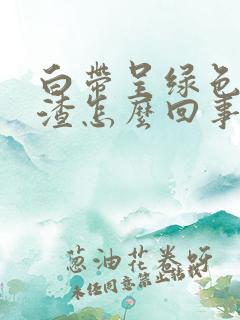 白带呈绿色
渣怎麼回事
葱油花卷呀
未经同意禁止转载